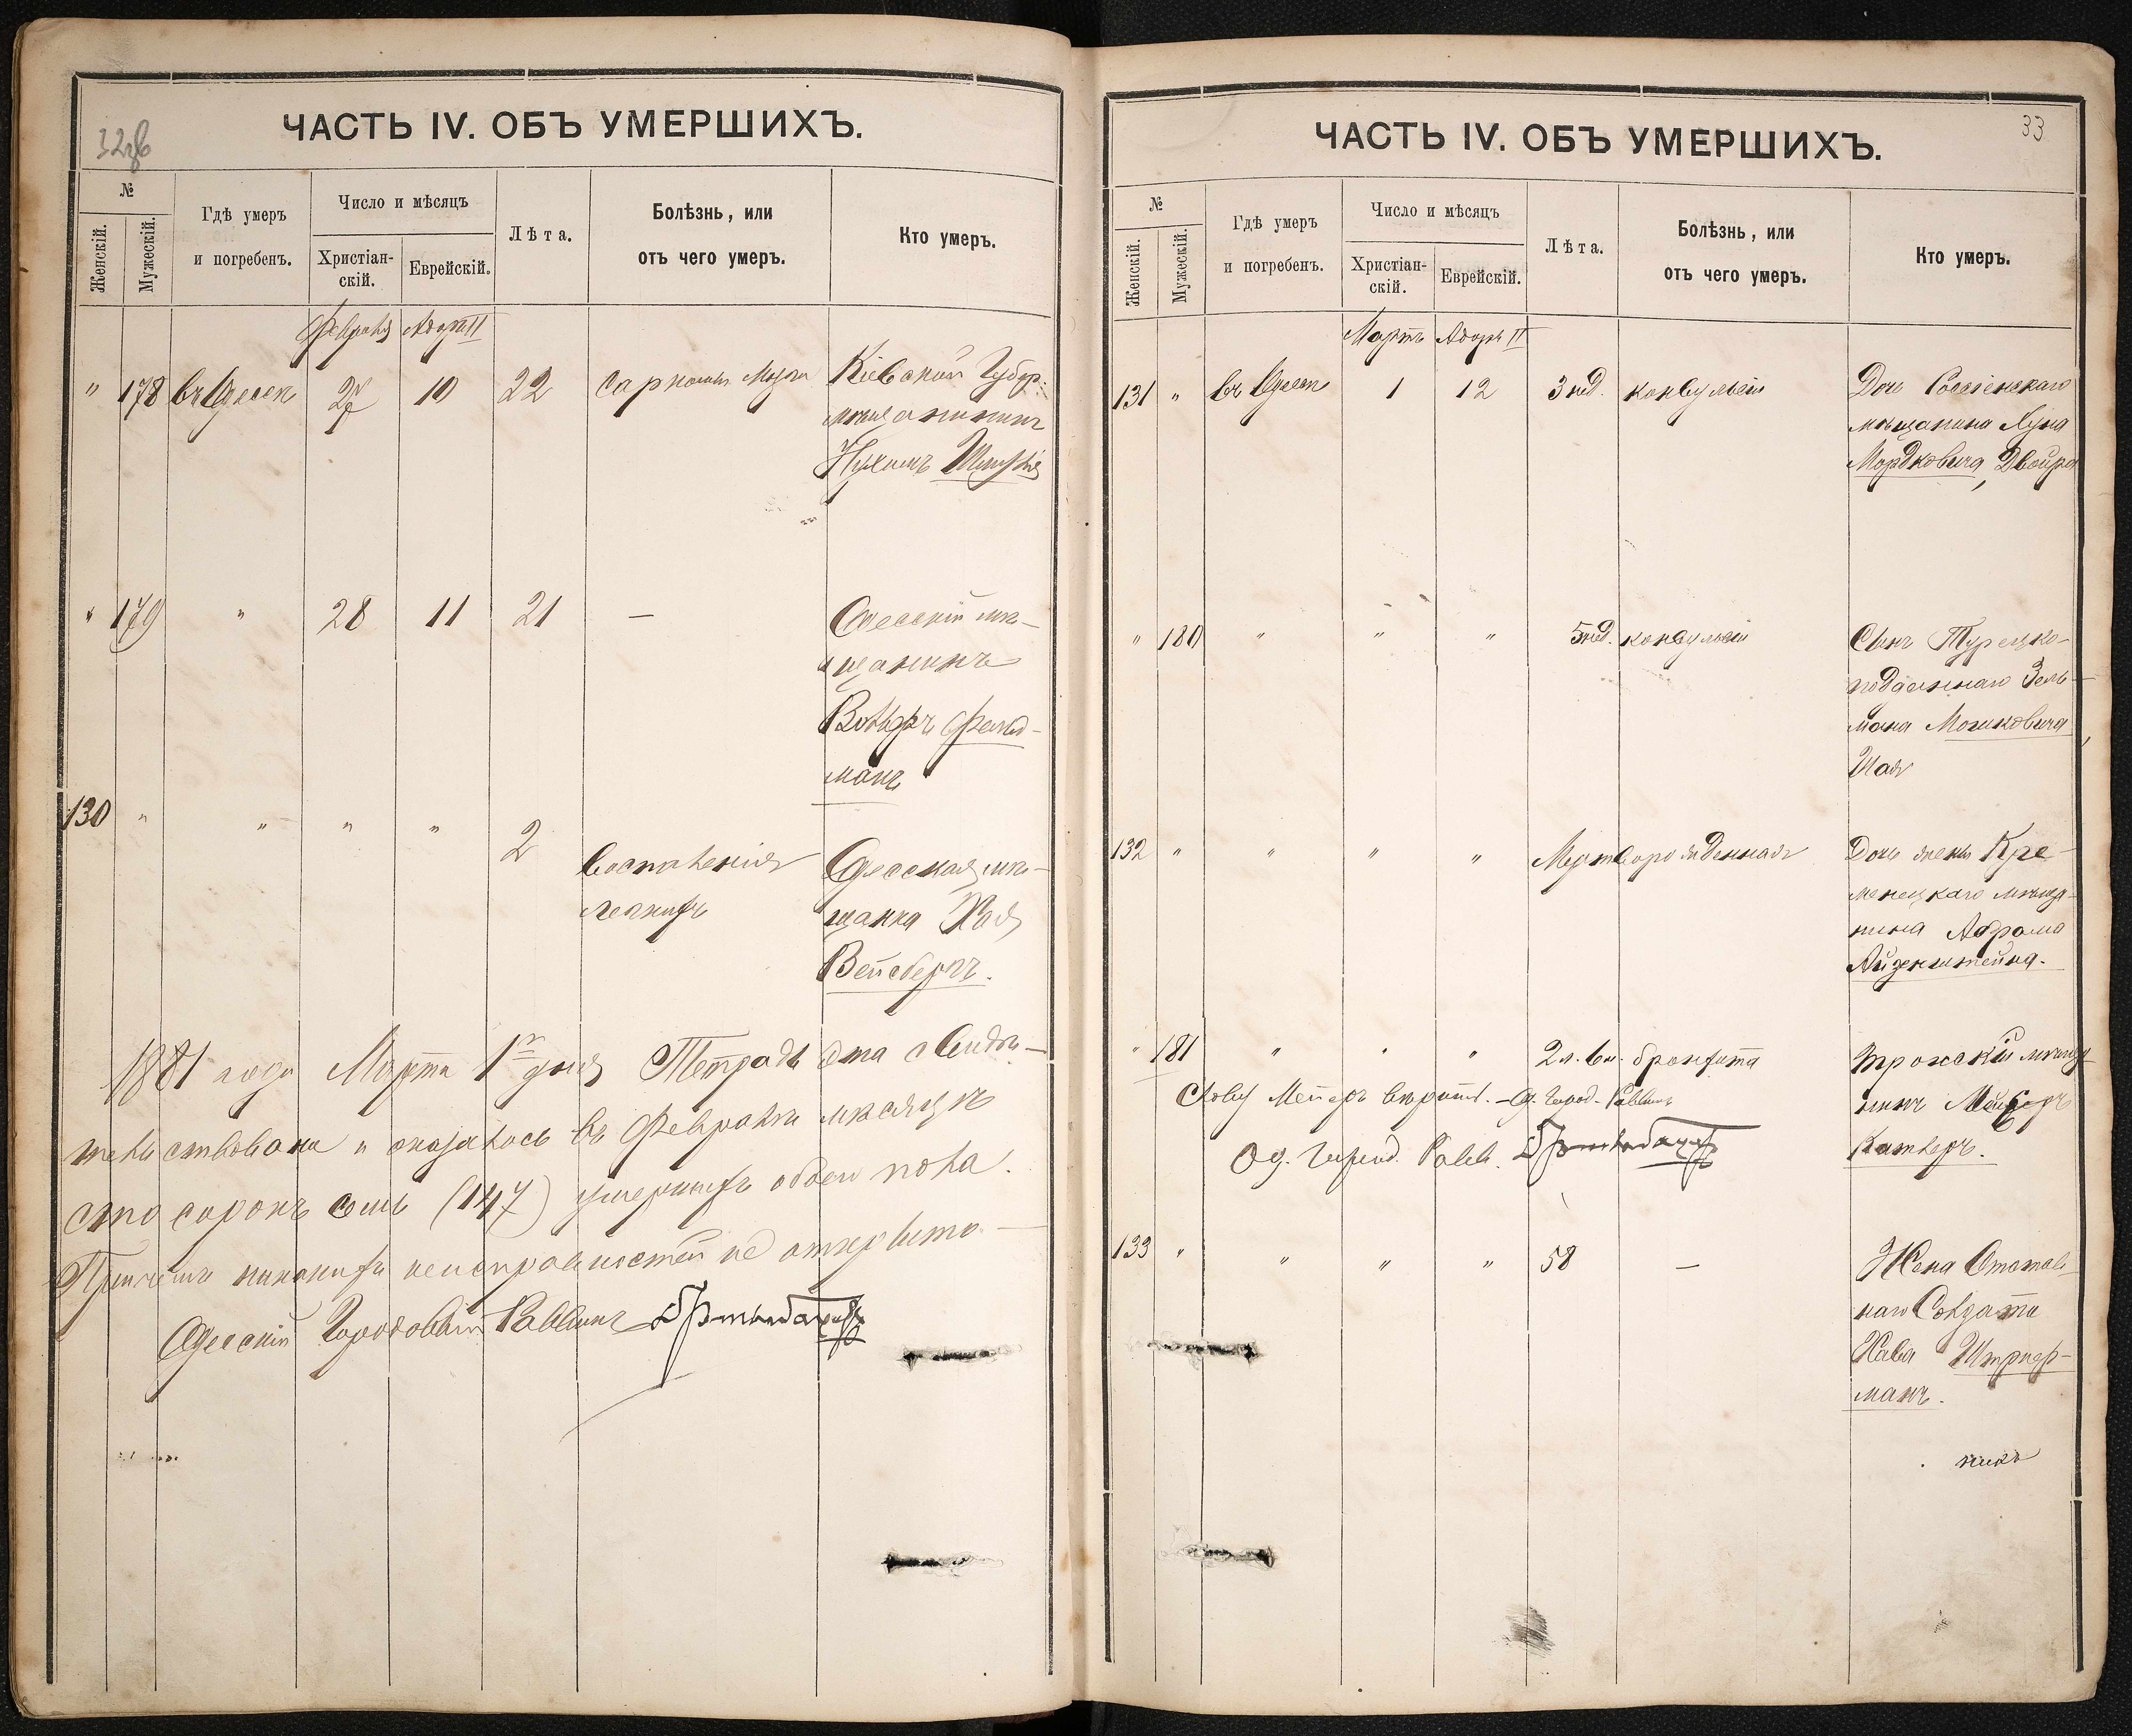 32об
ЧАСТЬ IV. ОБЪ УМЕРШИХЪ.
№
Женскій.
Мужескій.
Гдѣ умеръ
и погребенъ.
Число и мѣсяцъ
Христіан-
скій.
Еврейскій.
Лѣта.
Болѣзнь, или
отъ чего умеръ.
Кто умеръ.
Февраля Адоръ II
" 178 въ Одессѣ 27 10 22 Мозга Кіевской Губер.
мѣщанинъ
Нухимъ
" 179 " 28 11 21 — Одесскій мѣ-
щанинъ
Вольфъ Фельд-
манъ
130 " " " " 2 Воспаленія Одесская мѣ-
легкихъ щанка Хая
Вейсбергъ.
1881 года Марта 1го дня Тетрадь эта свидѣ-
тельствована и оказалось въ Февралѣ мѣсяцѣ
сто сорокъ семь (147) умершихъ обоего пола.
Причемъ никакихъ неисправностей не открыто —
Одесскій Городовой Раввинъ
33
ЧАСТЬ IV. ОБЪ УМЕРШИХЪ.
№
Женскій.
Мужескій.
Гдѣ умеръ
и погребенъ.
Число и мѣсяцъ
Христіан-
скій.
Еврейскій.
Лѣта.
Болѣзнь, или
отъ чего умеръ.
Кто умеръ.
Мартъ Адоръ II
131 " въ Одессѣ 1 12 3 нед. конвульсіи Дочь
мѣщанина
Мордковича, Двойра
" 180 " " " 5 нед. конвульсіи Сынъ Турецко-
подданнаго Зель-
мана Мошковича,
Шая
132 " " " " Мертворожденная Дочь Кре-
менецкаго мѣща-
нина Абрама
Айзенштейна.
" 181 " " " 2 л. 6 м. бронхита Трокскій мѣща-
нинъ Мейеръ
Слову Мейеръ вѣрить. — О. Город. Раввинъ
Од. Город. Равв.
133 " " " " 58 — Жена Отстав-
наго Солдата
Хава
манъ.